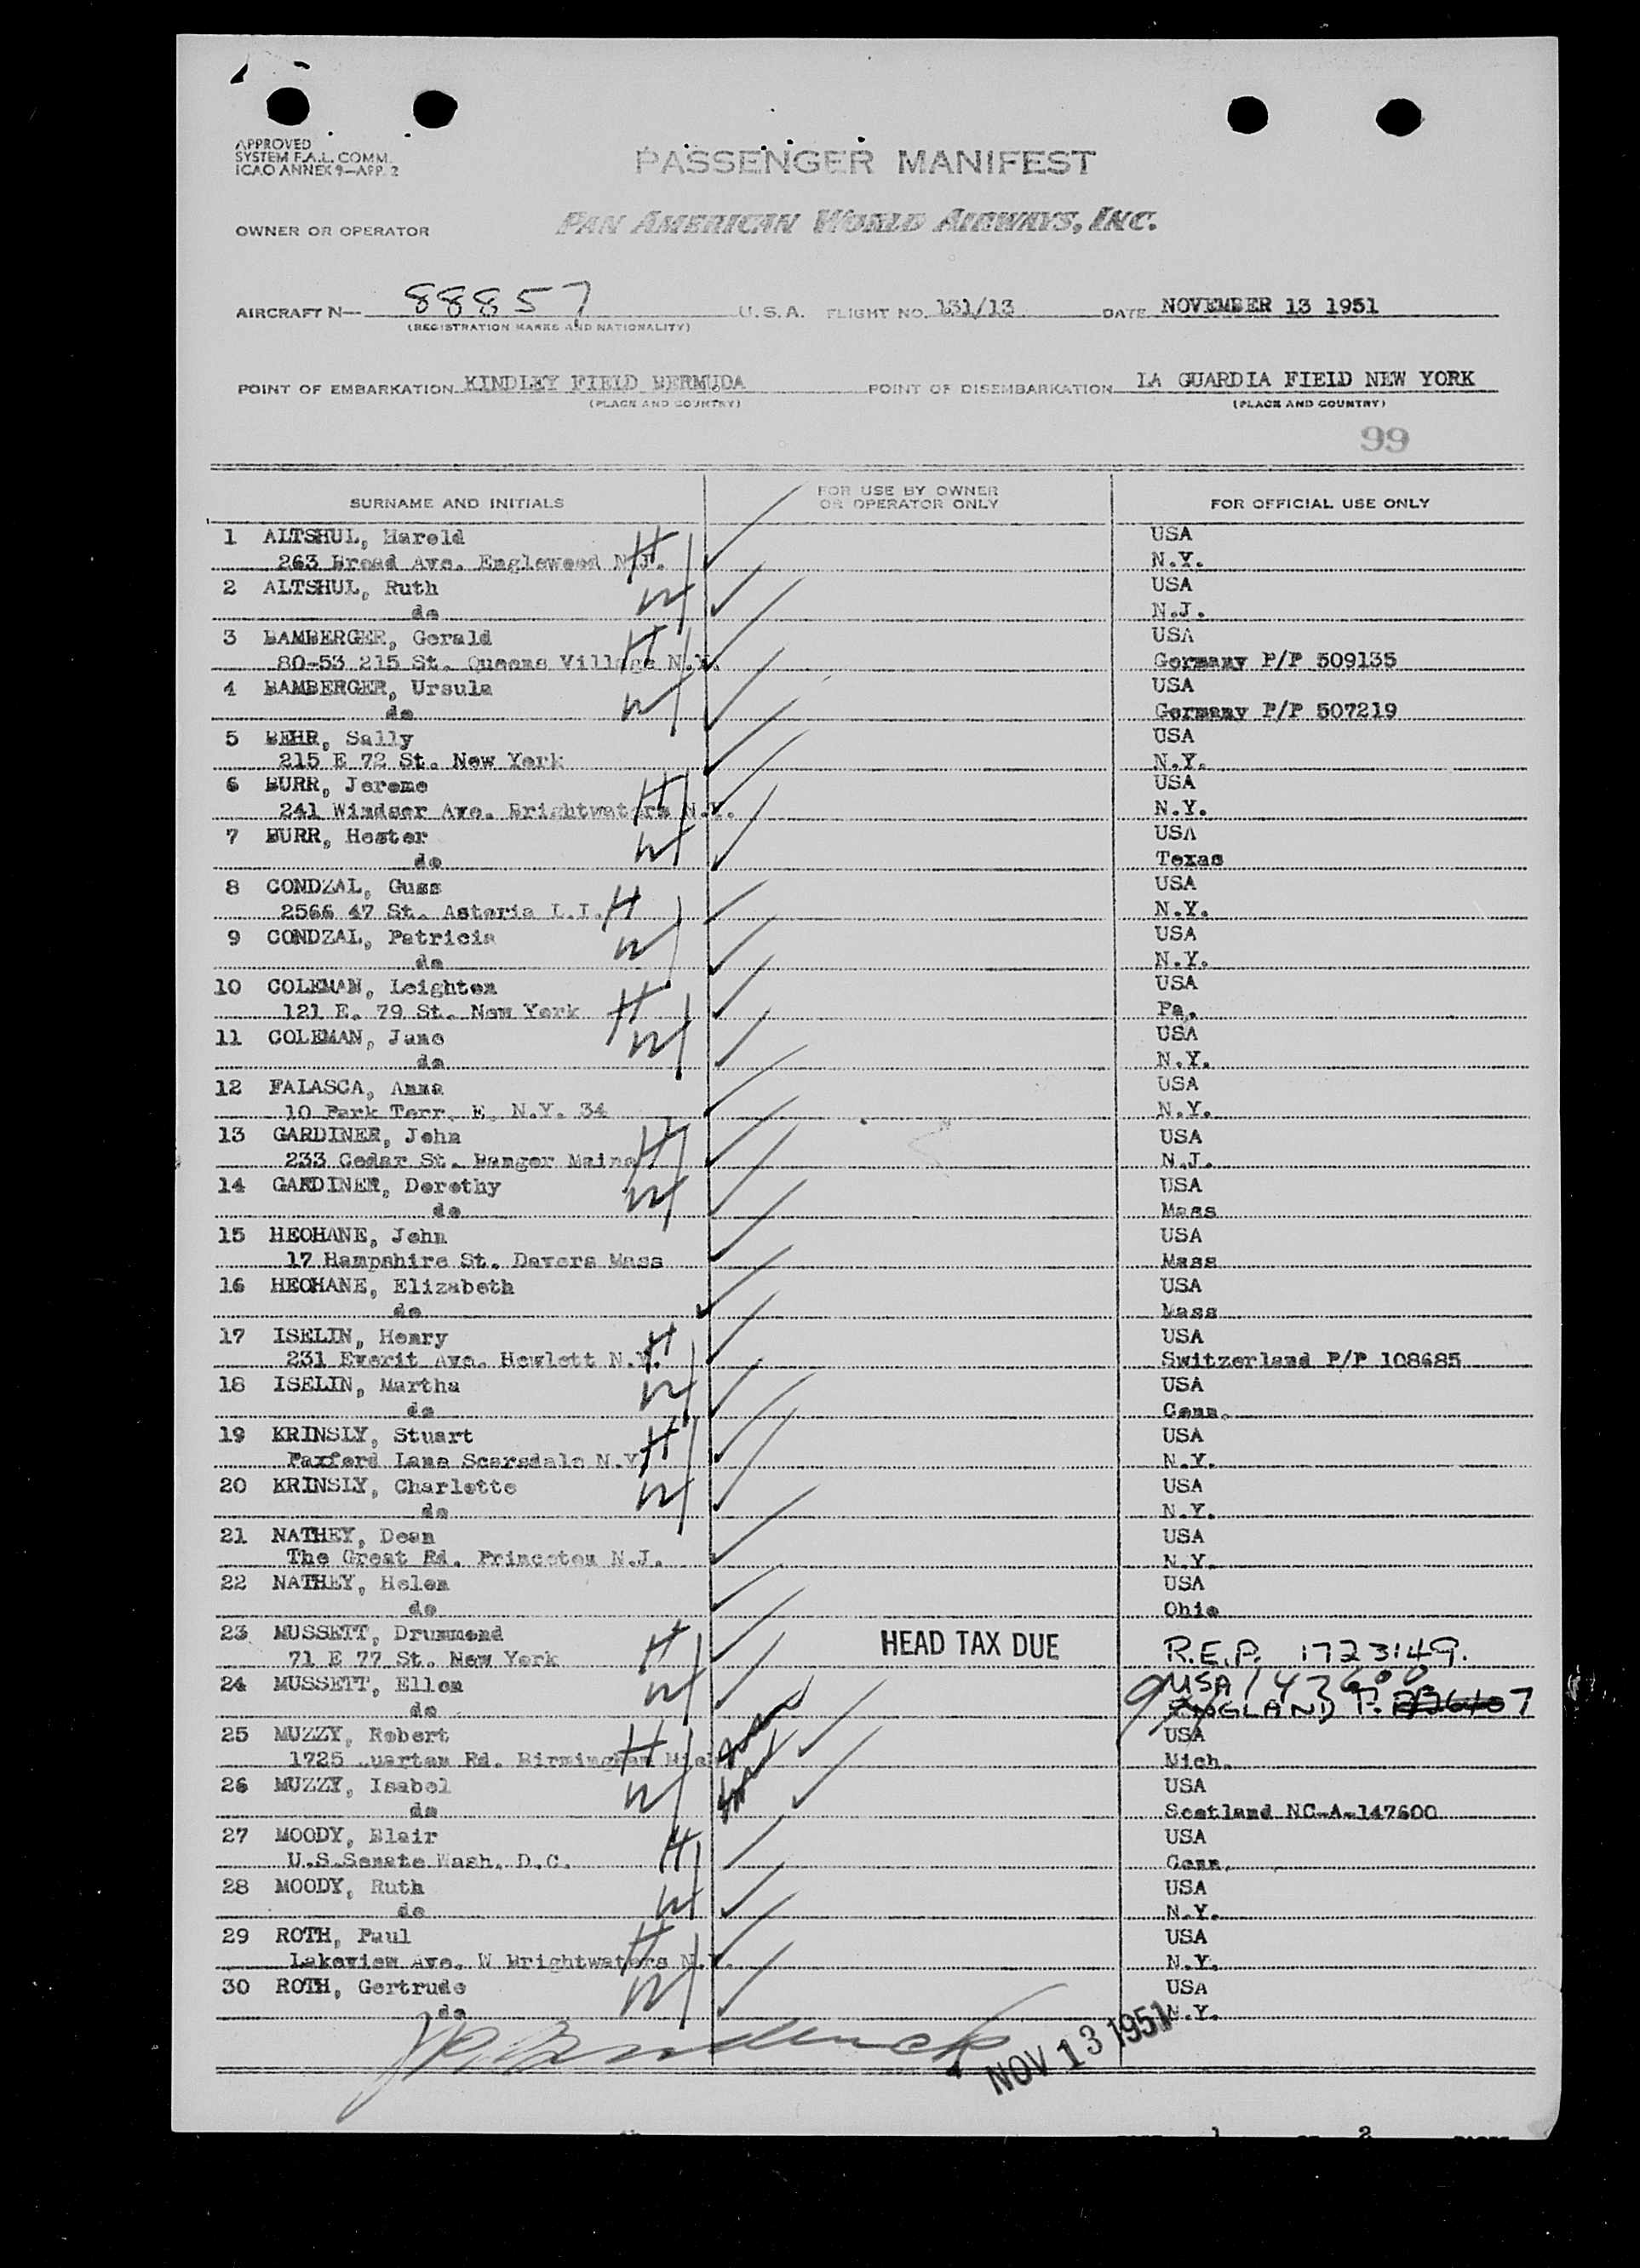 APPROVED
SYSTEM F.A.L. COMM.
ICAO ANNEX 9—APP. 2
PASSENGER MANIFEST
OWNER OR OPERATOR PAN AMERICAN WORLD AIRWAYS, INC.
AIRCRAFT N— 88857 U.S.A. FLIGHT NO. 131/13 DATE NOVEMBER 13 1951
(REGISTRATION MARKS AND NATIONALITY)
POINT OF EMBARKATION KINDLEY FIELD BERMUDA POINT OF DISEMBARKATION LA GUARDIA FIELD NEW YORK
(PLACE AND COUNTRY) (PLACE AND COUNTRY)
99
SURNAME AND INITIALS FOR USE BY OWNER OR OPERATOR ONLY FOR OFFICIAL USE ONLY
1 ALTSHUL, Harold H USA
263 Broad Ave. Englewood N.J. N.Y.
2 ALTSHUL, Ruth W USA
do N.J.
3 BAMBERGER, Gerald H USA
80-53 215 St. Queens Village N.Y. Germany P/P 509135
4 BAMBERGER, Ursula W USA
do Germany P/P 507219
5 BEHR, Sally USA
215 E 72 St. New York N.Y.
6 BURR, Jerome H USA
241 Windsor Ave. Brightwaters N.Y. N.Y.
7 BURR, Hester W USA
do Texas
8 CONDZAL, Guss USA
2566 47 St. Astoria L.I. H N.Y.
9 CONDZAL, Patricia W USA
do N.Y.
10 COLEMAN, Leighton USA
121 E. 79 St. New York H Pa.
11 COLEMAN, Jane W USA
do N.Y.
12 FALASCA, Anna USA
10 Park Terr. E. N.Y. 34 N.Y.
13 GARDINER, John H USA
233 Cedar St. Bangor Maine N.J.
14 GARDINER, Dorothy W USA
do Mass
15 HEOHANE, John USA
17 Hampshire St. Davers Mass Mass
16 HEOHANE, Elizabeth USA
do Mass
17 ISELIN, Henry H USA
231 Everit Ave. Hewlett N.Y. Switzerland P/P 108685
18 ISELIN, Martha W USA
do Conn.
19 KRINSLY, Stuart H USA
Paxford Lane Scarsdale N.Y. N.Y.
20 KRINSLY, Charlotte W USA
do N.Y.
21 NATHEY, Dean USA
The Great Rd. Princeton N.J. N.Y.
22 NATHEY, Helen USA
do Ohio
23 MUSSETT, Drummond H HEAD TAX DUE
71 E 77 St. New York R.E.P. 1723149.
24 MUSSETT, Ellen W USA 147600
do ENGLAND P.
25 MUZZY, Robert H USA
1725 Quarton Rd. Birmingham Mich Mich.
26 MUZZY, Isabel W USA
do Scotland NC-A-147600
27 MOODY, Blair H USA
U.S.Senate Wash. D.C. Conn.
28 MOODY, Ruth W USA
do N.Y.
29 ROTH, Paul H USA
Lakeview Ave. W Brightwaters N.Y. N.Y.
30 ROTH, Gertrude W USA
do N.Y.
NOV 13 1951
1 2